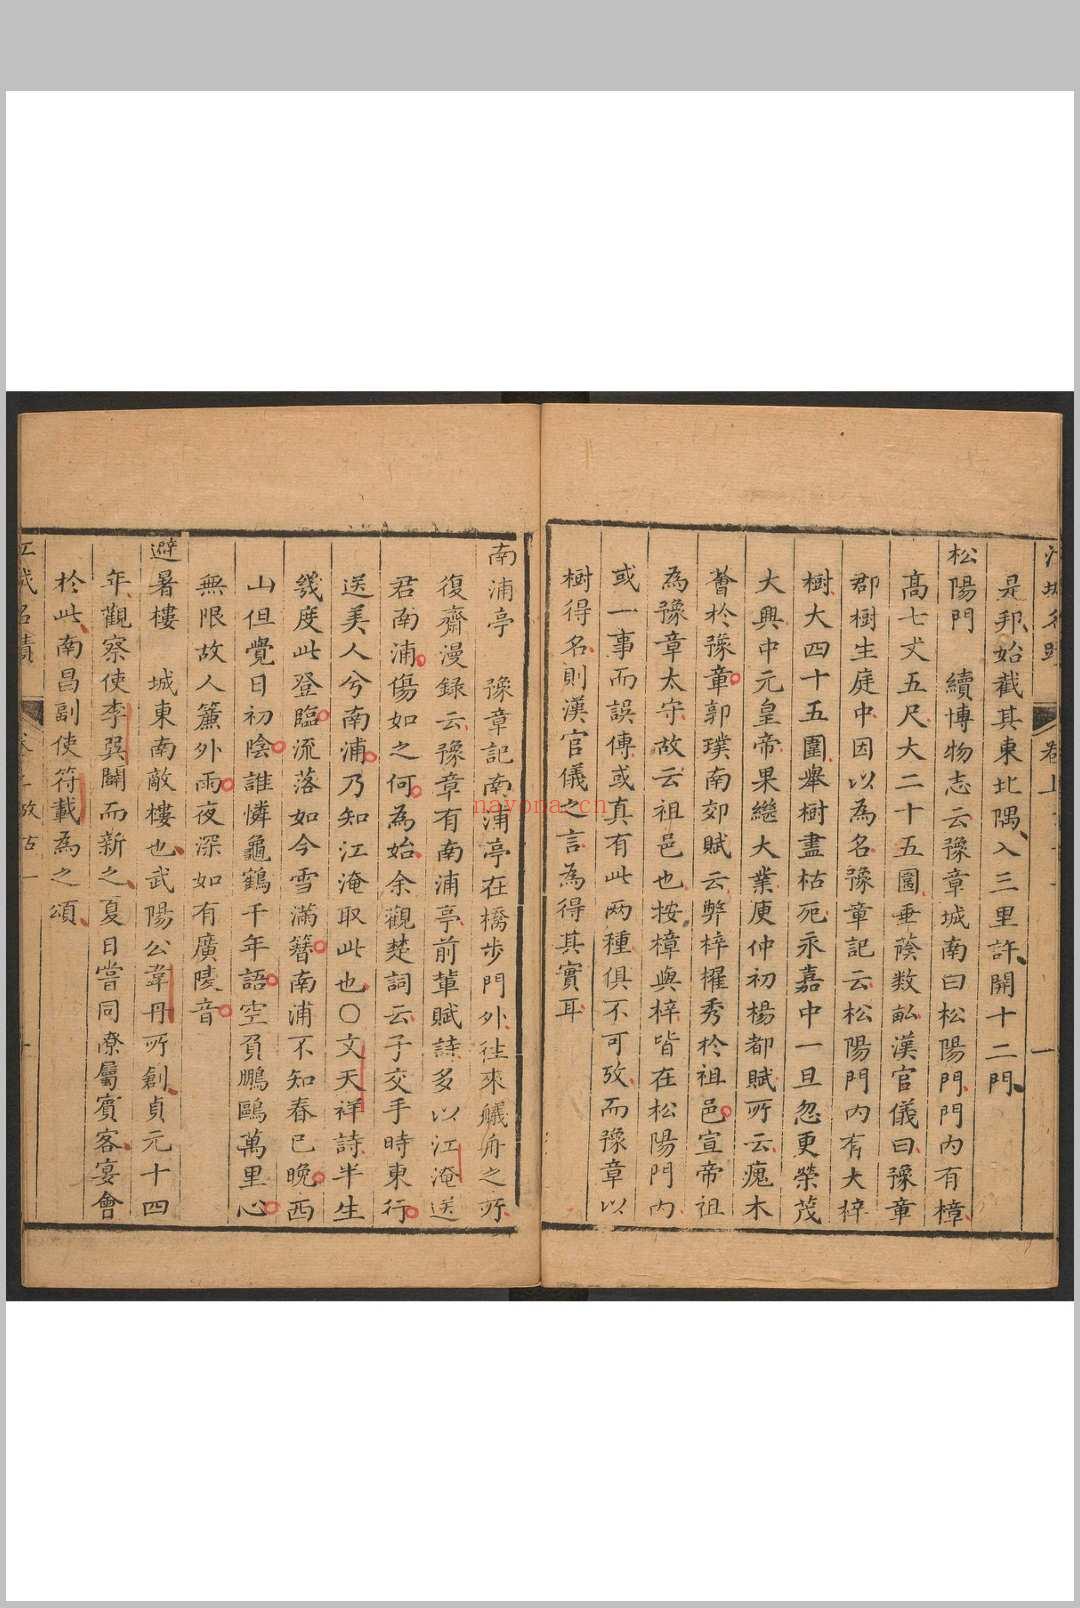 是邦始截其東北隅入三里許開十二門
松陽門 續博物志云豫章城南曰松陽門門內有樟
高七丈五尺大二十五圍垂蔭数畝漢官儀曰豫章
郡樹生庭中因以為名豫章記云松陽門內有大梓
樹大四十五圍舉樹盡枯死永嘉中一旦忽更榮茂
大興中元皇帝果繼大業庾仲初楊都賦所云瘣木
薈於豫章郭璞南郊賦云弊梓擢秀於祖邑宣帝祖
為豫章太守故云祖邑也按樟與梓皆在松陽門內
或一事而誤傳或真有此兩種俱不可攷而豫章以
樹得名則漢官儀之言為得其實耳
南浦亭 豫章記南浦亭在橋步門外徃來艤舟之所
復齋漫録云豫章有南浦亭前輩賦詩多以江淹送
君南浦傷如之何為始余觀楚詞云子交手時東行
送美人兮南浦乃知江淹取此也〇文天祥詩半生
幾度此登臨流落如今雪滿簪南浦不知春已晚西
山但覺日初陰誰憐龜鶴千年語空負鵬鷗萬里心
無限故人簾外雨夜深如有廣陵音
避暑樓 城東南敵樓也武陽公韋丹所創貞元十四
年觀察使李巽闢而新之夏日嘗同僚屬賓客宴會
於此南昌副使符載為之頌
nayona.cn